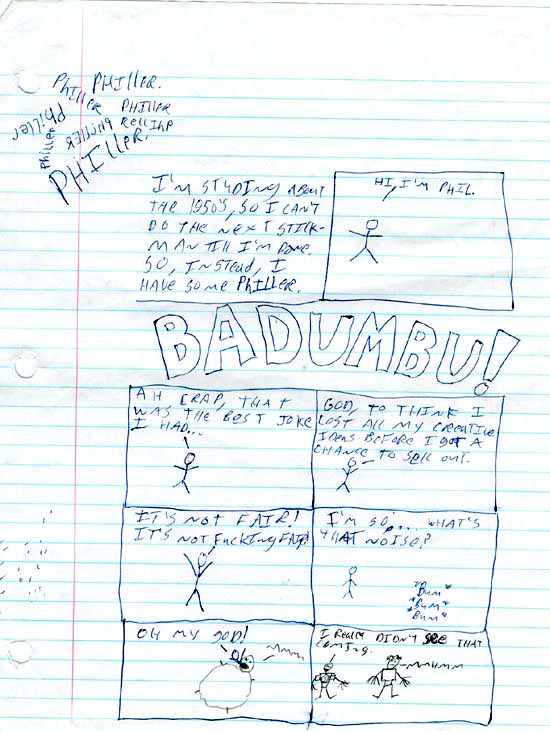 PHILLER.
PHILLER
PHILLER
PHILLER
PHILLER
PHILLER
PHILLER
PHILLER.
I'M STUDING ABOUT
THE 1950'S, SO I CAN'T
DO THE NEXT STICK-
MAN TILL I'M DONE.
SO, INSTEAD, I
HAVE SOME PHILLER.
HI, I'M PHIL.
BADUMBU!
AH CRAP, THAT
WAS THE BEST JOKE
I HAD...
GOD, TO THINK I
LOST ALL MY CREATIVE
IDEAS BEFORE I GOT A
CHANCE TO SELL OUT.
IT'S NOT FAIR!
IT'S NOT FUCKING FAIR!
I'M SO... WHAT'S
THAT NOISE?
*BUM*
*BUM*
*BUM*
OH MY GOD!
I REALLY DIDN'T SEE THAT
COMING.